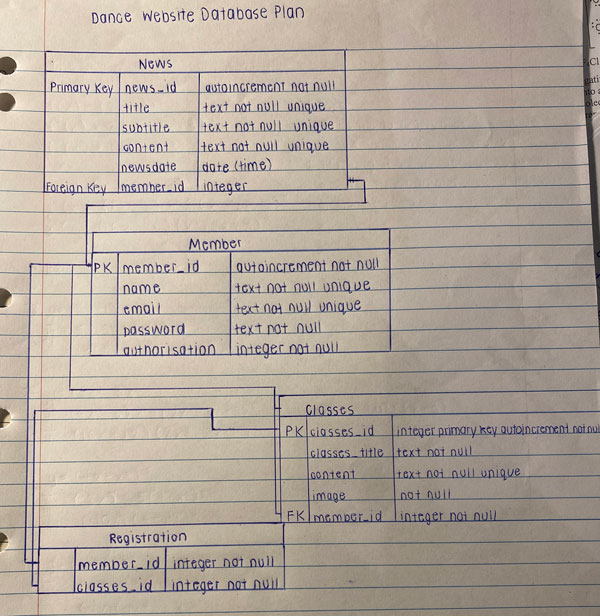 Dance Website Database Plan
News
Primary Key news_id autoincrement not null
title text not null unique
subtitle text not null unique
content text not null unique
newsdate date (time)
Foreign Key member_id integer
Member
PK member_id autoincrement not null
name text not null unique
email text not null unique
password text not null
authorisation integer not null
Classes
PK classes_id integer primary key autoincrement not nul
classes_title text not null
content text not null unique
image not null
FK member_id integer not null
Registration
member_id integer not null
classes_id integer not null